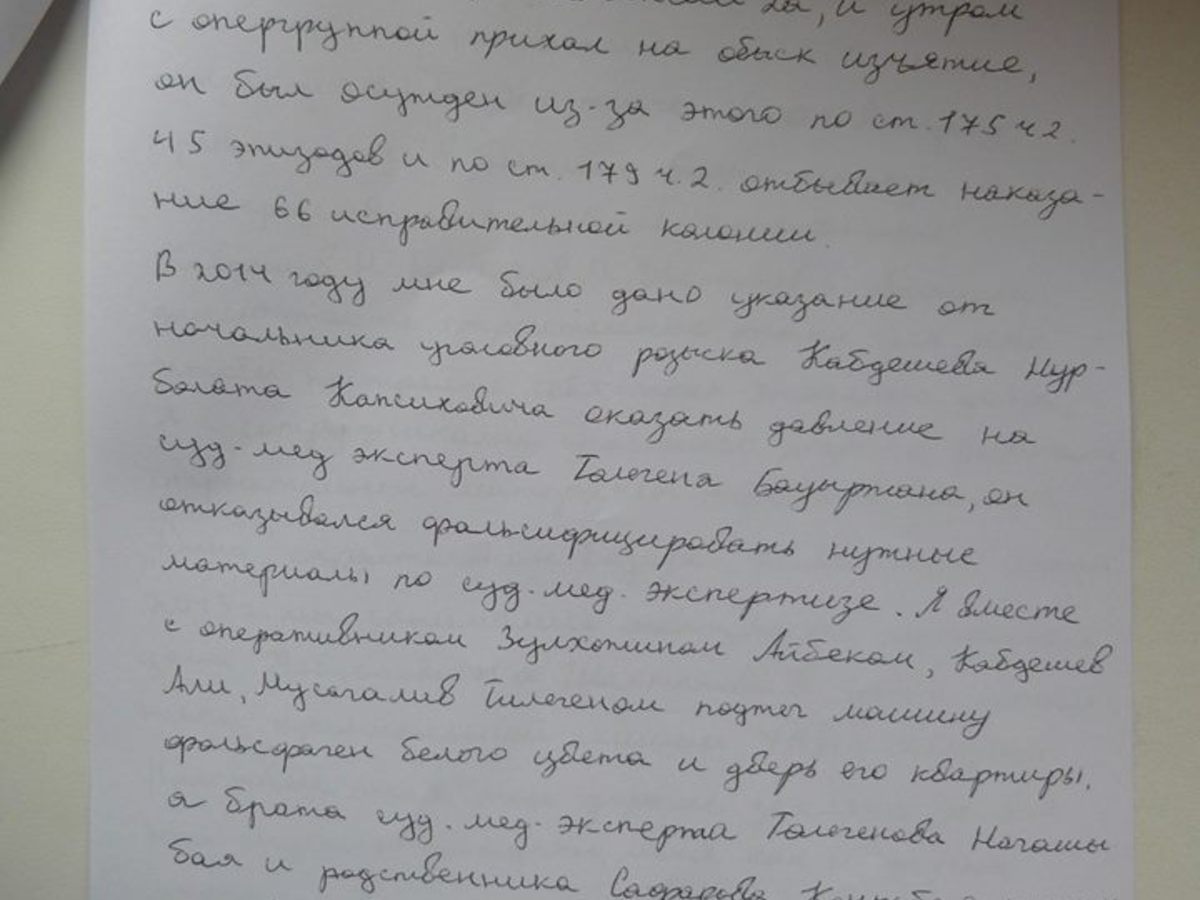 и утром
с опергруппой прихал на обыск изъятие,
он был осужден из-за этого по ст. 175 ч 2.
45 эпизодов и по ст. 179 ч. 2. отбывает наказа-
ние 66 исправительной колонии.
В 2014 году мне было дано указание от
начальника уголовного розыска Кабдешева Нур-
болата Капсиховича оказать давление на
суд.-мед эксперта Толегена Бауыржана, он
отказывался фальсифицировать нужные
материалы по суд. мед. экспертизе. Я вместе
с оперативником Зулхожином Айбеком, Кабдешев
Али, Мусагалив Тилегеном поджег машину
фольсфаген белого цвета и дверь его квартиры,
а брата суд. мед. эксперта Толегенова Нагашы
бая и родственника